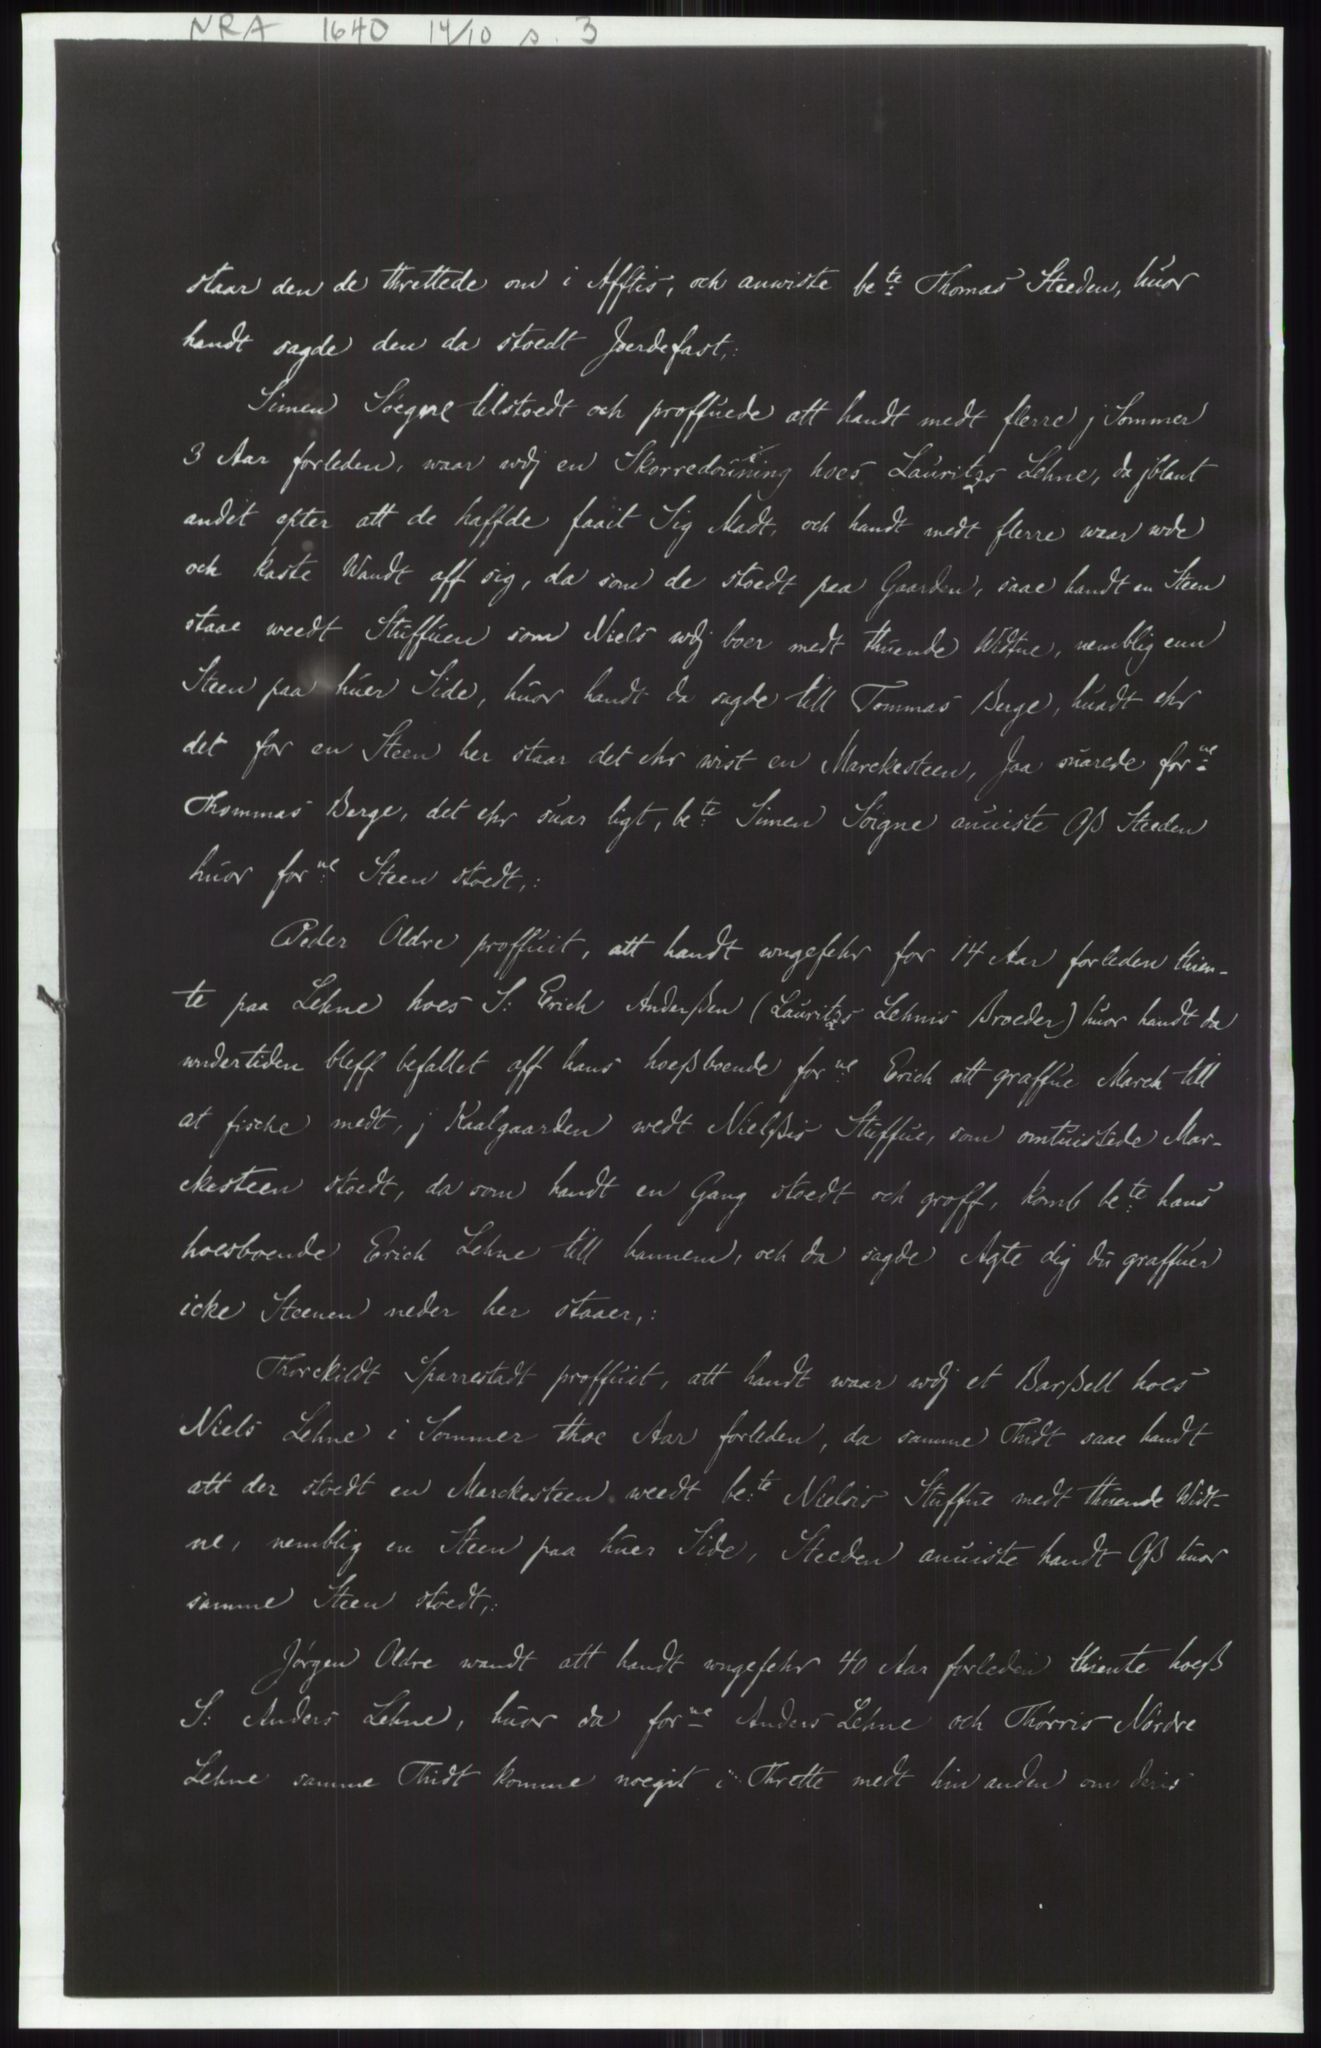 NRA 1640 14/10 s. 3
staar den de threttede om i Afftis, och anwiste be<sup>te</sup>: Thomas Steeden, huor
handt sagde den da stoedt Jærdefast,:
Simen Söegne tilstoedt och proffuede att handt medt flerre j Sommer
3 Aar forleden, waar wdj en Skorredouning hoes Lauritzs Lehne, da jblant
andet epter att de haffde faait Sig Madt, och handt medt flerre waar wde
och kaste Wandt aff sig, da som de stoedt paa Gaarden, saae handt en Steen
staae weedt Stuffuen som Niels wdj boer medt thuende Widtne, nemblig enn
Steen paa huer Side, huor handt da sagde till Tommas Berge, huadt ehr
det for en Steen her staar det ehr wist en Marckesteen, Jaa suarede for<sup>ne</sup>:
Thommas Berge, det ehr suar ligt, be<sup>te</sup>: Simen Söigne anuiste Oß Steeden
huor for<sup>ne</sup>: Steen stoedt,:
Peder Oldre proffuit, att handt ungefehr for 14 Aar forleden thien-
te paa Lehne hoes S: Erich Anderßen (Lauritzs Lehnis Broeder) huor handt da
undertiden bleff befallet aff hans hoeßboende for<sup>ne</sup>: Erich att graffue March till
at fische medt, j Kaalgaarden wedt Nielßis Stuffue, som omtuistede Mar-
ckesteen stoedt, da som handt en Gang stoedt och groff, komb be<sup>te</sup>: hans
hoesboende Erich Lehne till hannem, och da sagde Agte dig du graffuer
icke Steenen neder her staaer,:
Thorckildt Sparrestadt proffuit, att handt waar wdj et Barßell hoes
Niels Lehne i Sommer thoe Aar forleden, da samme Thidt saae handt
att der stoedt en Marckesteen weedt be<sup>te</sup>: Nielsis Stuffue medt thuende Widt-
ne, nemblig en Steen paa huer Side, Steeden anuiste handt Oß huor
samme Steen stoedt,:
Jørgen Oldre wandt att handt ungefehr 40 Aar forleden thiente hoeß
S: Anders Lehne, huor da for<sup>ne</sup>: Anders Lehne och Thórris Nórdre
Lehne samme Thidt komme noegit i Thrette medt hin anden om deris